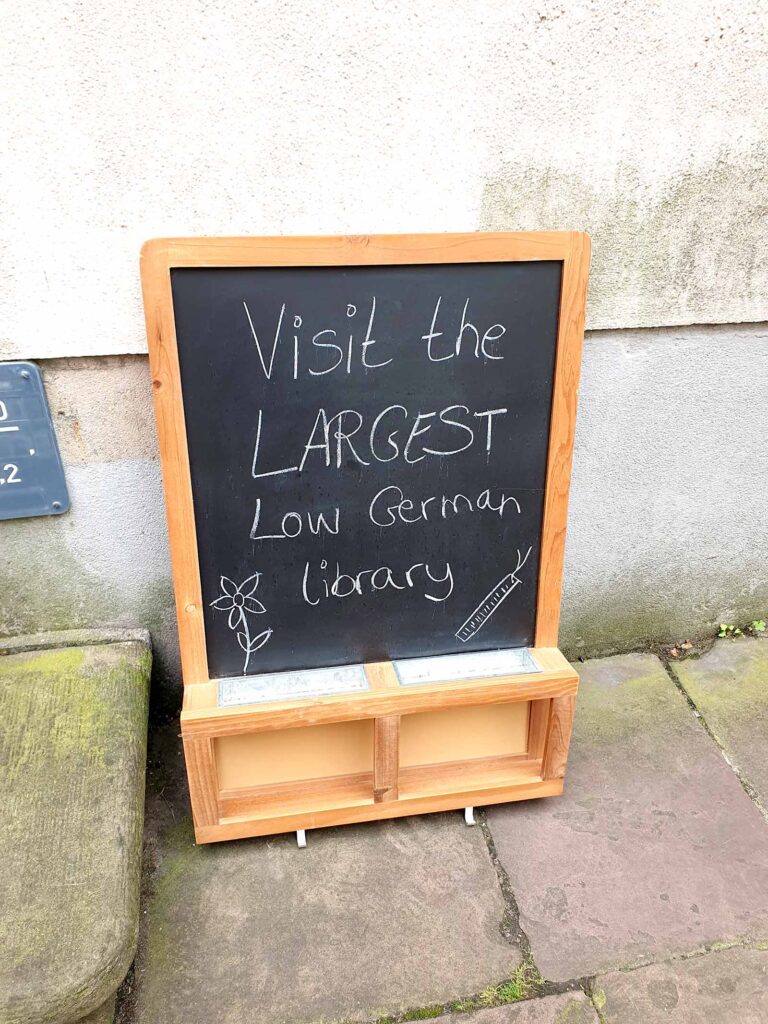 Visit the
LARGEST
Low German
library
0
,2